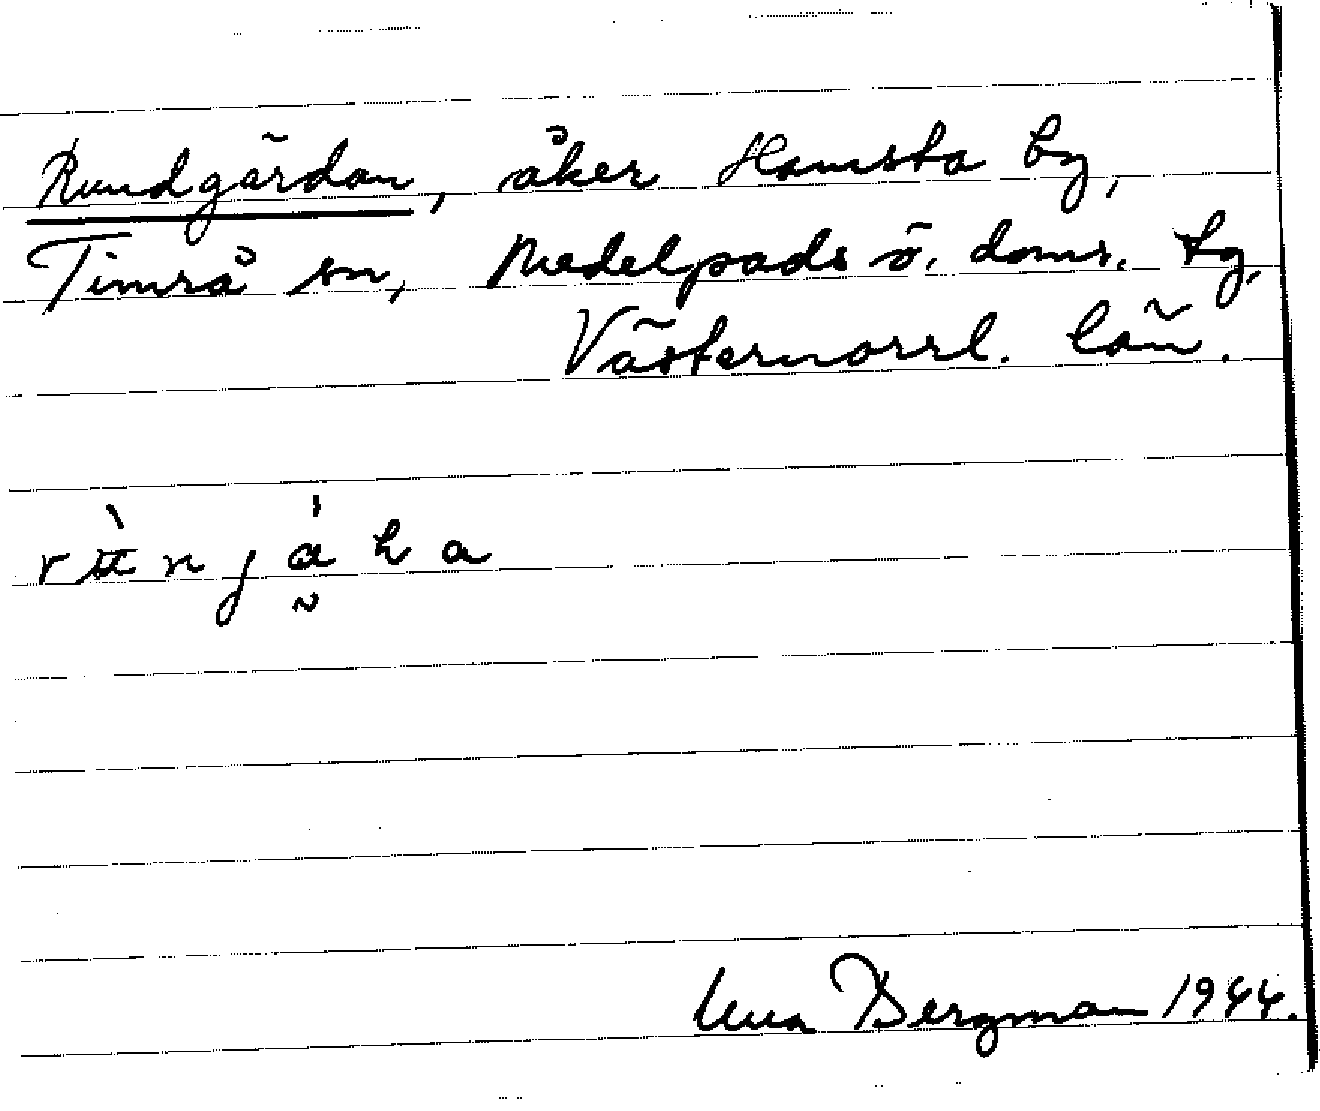 Rundgärdan, åker Hamsta by,
Timrå sn, Medelpads ö. doms. tg,
Västernorrl. län.
Bergman 1944.